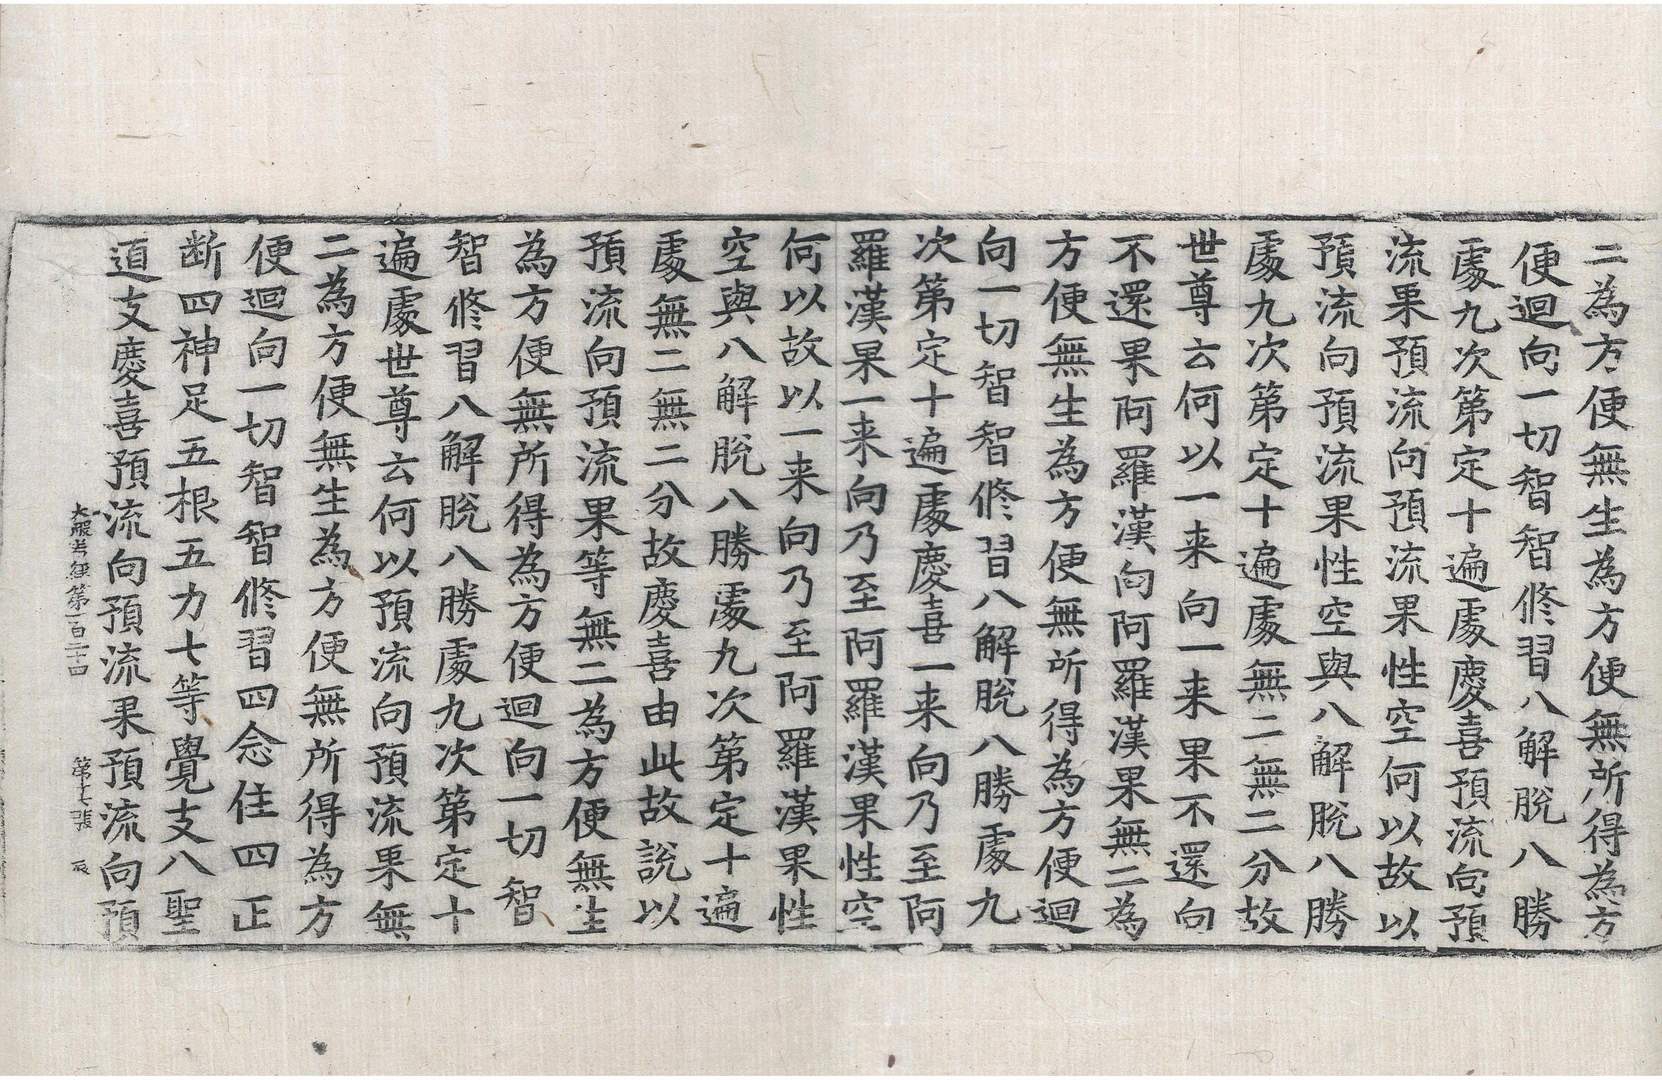 二為方便無生為方便無所得為方
便迴向一切智智修習八解脫八勝
處九次第定十遍處慶喜預流向預
流果預流向預流果性空何以故以
預流向預流果性空與八解脫八勝
處九次第定十遍處無二無二分故
世尊云何以一来向一来果不還向
不還果阿羅漢向阿羅漢果無二為
方便無生為方便無所得為方便迴
向一切智智修習八解脫八勝處九
次第定十遍處慶喜一来向乃至阿
羅漢果一来向乃至阿羅漢果性空
何以故以一来向乃至阿羅漢果性
空與八解脫八勝處九次第定十遍
處無二無二分故慶喜由此故說以
預流向預流果等無二為方便無生
為方便無所得為方便迴向一切智
智修習八解脫八勝處九次第定十
遍處世尊云何以預流向預流果無
二為方便無生為方便無所得為方
便迴向一切智智修習四念住四正
断四神足五根五力七等覺支八聖
道支慶喜預流向預流果預流向預
大般若經第一百二十四 第七張 辰